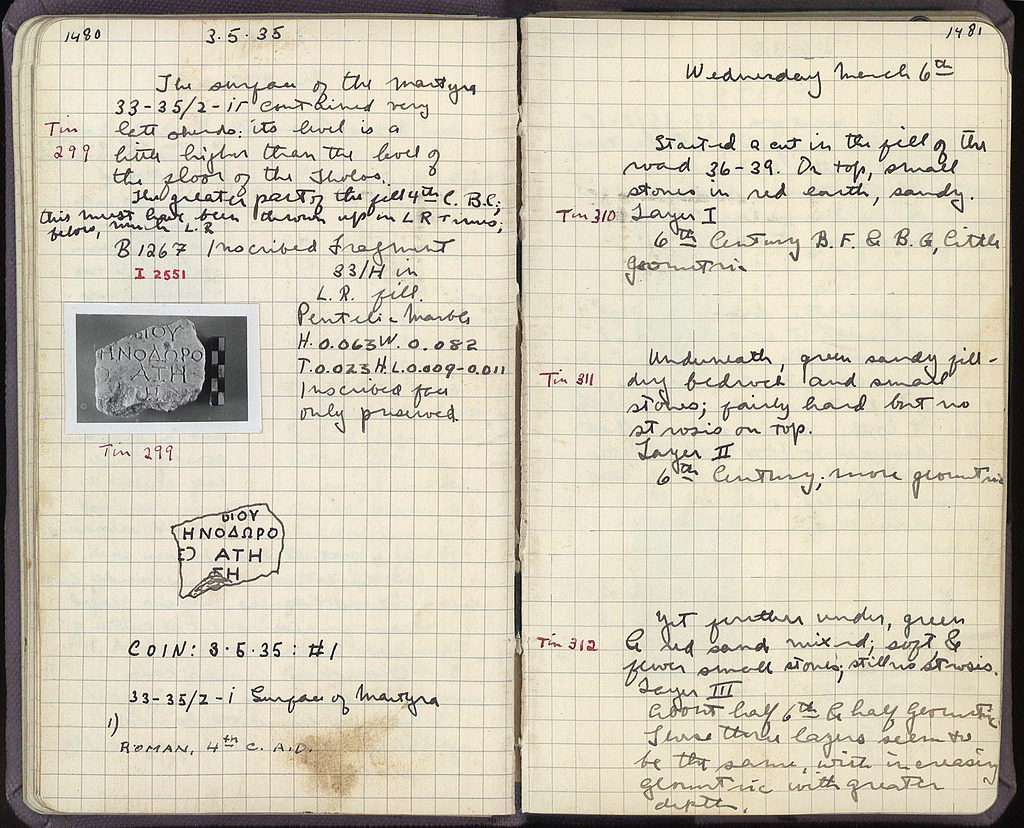 1480
3.5.35
The surface of the Martyra
33-35/2-ir contained very
Tin
late sherds: its level is a
299
little higher than the level of
the floor of the Tholos.
The greater part of the fill 4th C. B.C.;
this must have been thrown up in L R Times;
below, much L.R
B 1267 Inscribed Fragment
I 2551
33/H in
L.R. fill.
Pentelic Marble
H. 0.063 W. 0.082
T. 0.023 H.L. 0.009-0.011
Inscribed face
only preserved
ΔΙΟΥ
ΗΝΟΔΩΡΟ
ΑΤΗ
Tin 299
ΔΙΟΥ
ΗΝΟΔΩΡΟ
ΑΤΗ
ΣΗ
COIN: 3.5.35: #1
33-35/2-i Surface of Martyra
1)
ROMAN, 4th C. A.D.
1481
Wednesday March 6th
Started a cut in the fill of the
road 36-39. On top, small
stones in red earth, sandy.
Tin 310
Layer I
6th Century B.F. & B.G, little
geometric
Underneath, green sandy fill -
Tin 311
dug bedrock and small
stones; fairly hard but no
strosis on top.
Layer II
6th Century; more geometric
Yet further under, green
Tin 312
& red sand mixed; soft, &
fewer small stones; still no strosis.
Layer III
About half 6th & half Geometric
These three layers seem to
be the same, with increasing
geometric with greater
depth.